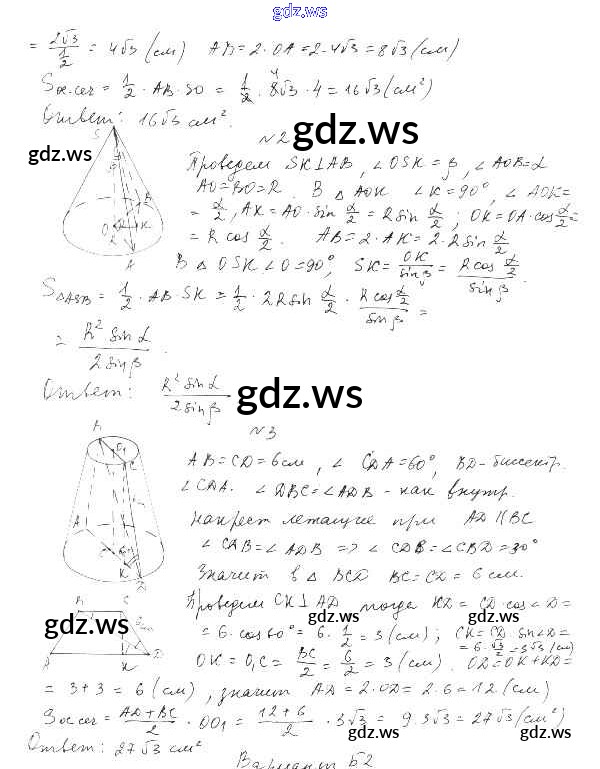 gdz.ws
= 2√3 / 1/2 = 4√3 (см) AB = 2·OA = 2·4√3 = 8√3 (см)
Sос.сеч = 1/2 · AB · SO = 1/2 · 8√3 · 4 = 16√3 (см²)
Ответ: 16√3 см².
gdz.ws
№2
gdz.ws
Проведем SK⊥AB, ∠OSK = β, ∠AOB = α
AO = BO = R. В △ AOK ∠K = 90°, ∠AOK =
= α/2, AK = AO · sin α/2 = R sin α/2; OK = OA · cos α/2 =
= R cos α/2. AB = 2·AK = 2·R sin α/2
В △ OSK ∠O = 90°, SK = OK / sin β = R cos α/2 / sin β.
S△ASB = 1/2 · AB · SK = 1/2 · 2R sin α/2 · R cos α/2 / sin β =
= R² sin α / 2 sin β.
Ответ: R² sin α / 2 sin β
gdz.ws
№3
AB = CD = 6 см, ∠CDA = 60°, BD - биссектр.
∠CDA. ∠DBC = ∠ADB - как внутр.
накрест лежащие при AD || BC
gdz.ws
∠CDB = ∠ADB => ∠CDB = ∠CBD = 30°
Значит в △ BCD BC = CD = 6 см.
Проведем CK⊥AD тогда KD = CD · cos∠D =
gdz.ws
= 6 · cos 60° = 6 · 1/2 = 3 (см); CK = CD · sin∠D =
= 6 · √3/2 = 3√3 (см)
OK = O₁C = BC/2 = 6/2 = 3 (см). OD = OK + KD =
= 3 + 3 = 6 (см), значит AD = 2·OD = 2·6 = 12 (см)
Sос.сеч = AD + BC / 2 · OO₁ = 12 + 6 / 2 · 3√3 = 9·3√3 = 27√3 (см²)
Ответ: 27√3 см²
gdz.ws
Вариант Б2
gdz.ws